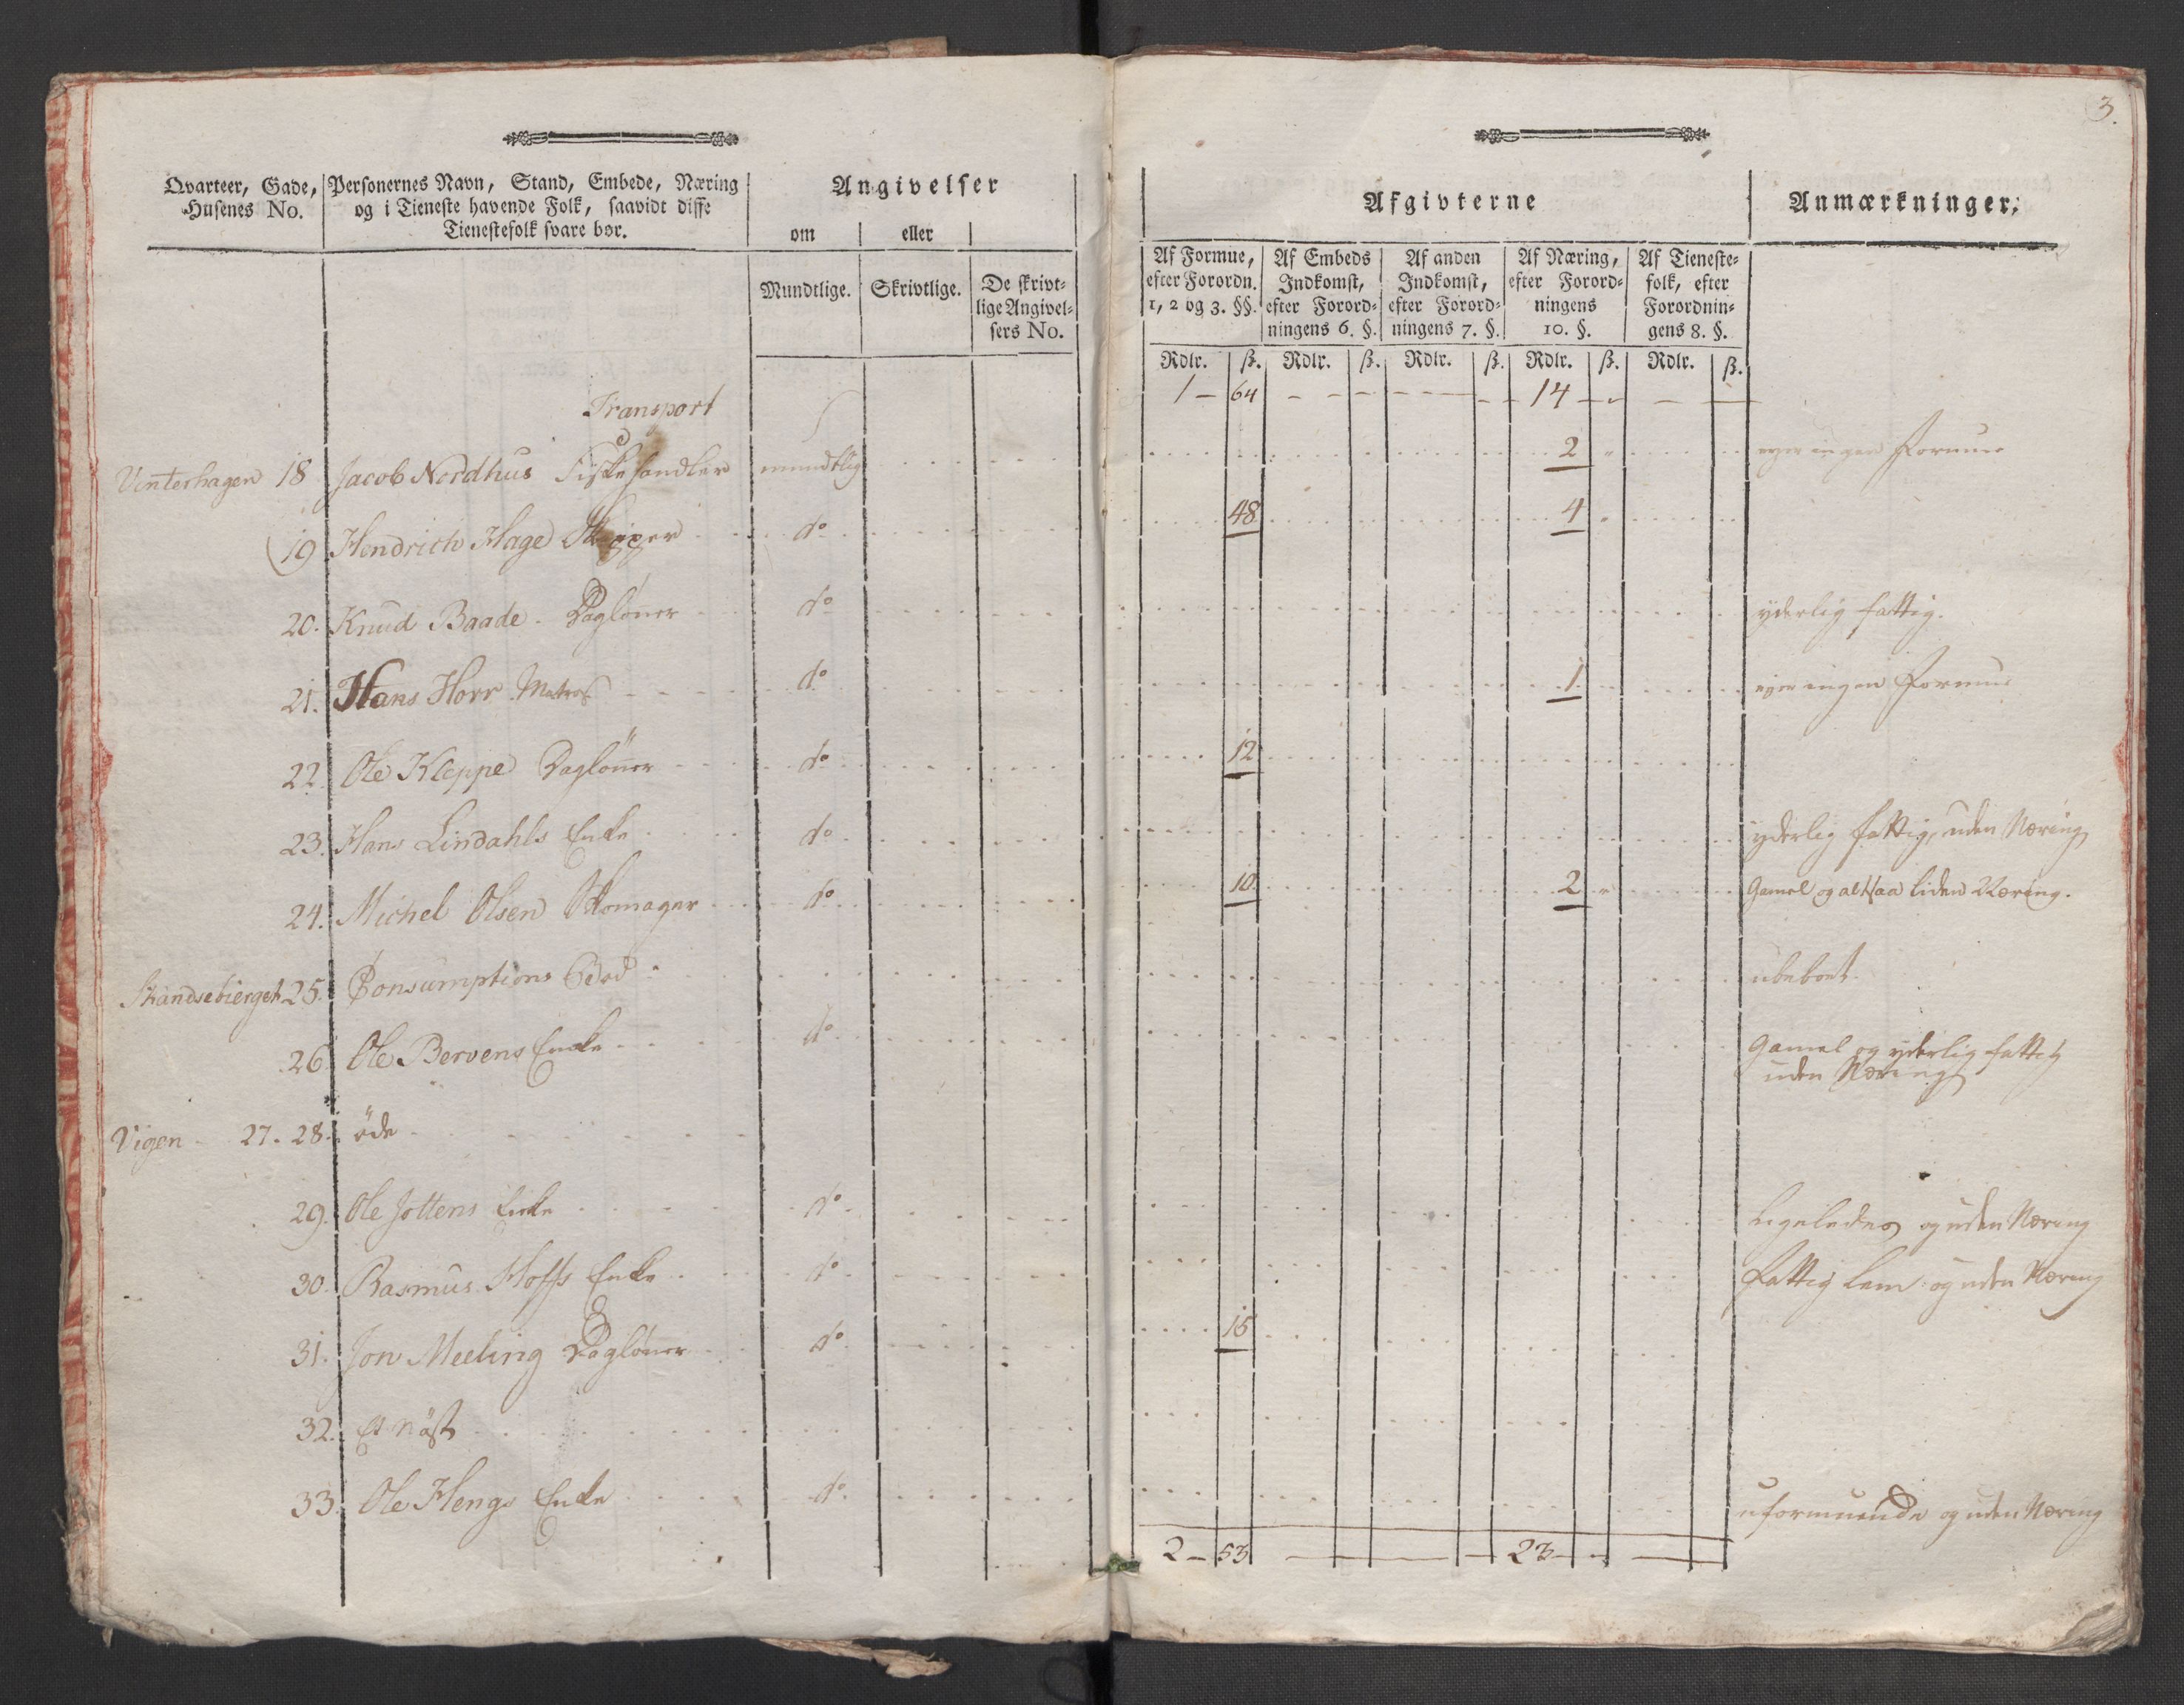 3.
Qvarteer, Gade, Husenes No.
Personernes Navn, Stand, Embede, Næring og i Tieneste havende Folk, saavidt disse Tienestefolk svare bør.
Angivelser
om eller
Mundtlige. Skrivtlige. De skrivtlige Angivelsers No.
Afgivterne
Anmærkninger.
Af Formue, efter Forordn. 1, 2 og 3. §§.
Af Embeds Indkomst, efter Forordningens 6. §.
Af anden Indkomst, efter Forordningens 7. §.
Af Næring, efter Forordningens 10. §.
Af Tienestefolk, efter Forordningens 8. §.
Rdlr. ß. Rdlr. ß. Rdlr. ß. Rdlr. ß. Rdlr. ß.
Transport 1 64 14
Vinterhagen 18 Jacob Nordhus Fiskehandler mundtlig 2 eyer ingen Formue
19 Hendrich Hage Skipper do 48 4
20. Knud Baade. Dagløner do yderlig fattig.
21. Hans Horr Matros do 1 eyer ingen Formue
22. Ole Kleppe Dagløner do 12
23. Hans Lindahls Enke do yderlig fattig, uden Næring
24. Michel Olsen Skomager do 10 2 Gamel og altsaa liden Næring.
Skandsebierget 25. Consumptions Bod ubeboet
26 Ole Bervens Enke do Gamel og yderlig fattig
uden Næring
Vigen 27. 28. öde
29. Ole Jottens Enke do Ligeledes og uden Næring
30. Rasmus Hoffs Enke do fattig Lem og uden Næring
31. Jon Meeling Dagløner do 15
32. Et Nöst
33. Ole Hengs Enke do uformuende og uden Næring
2 53 23